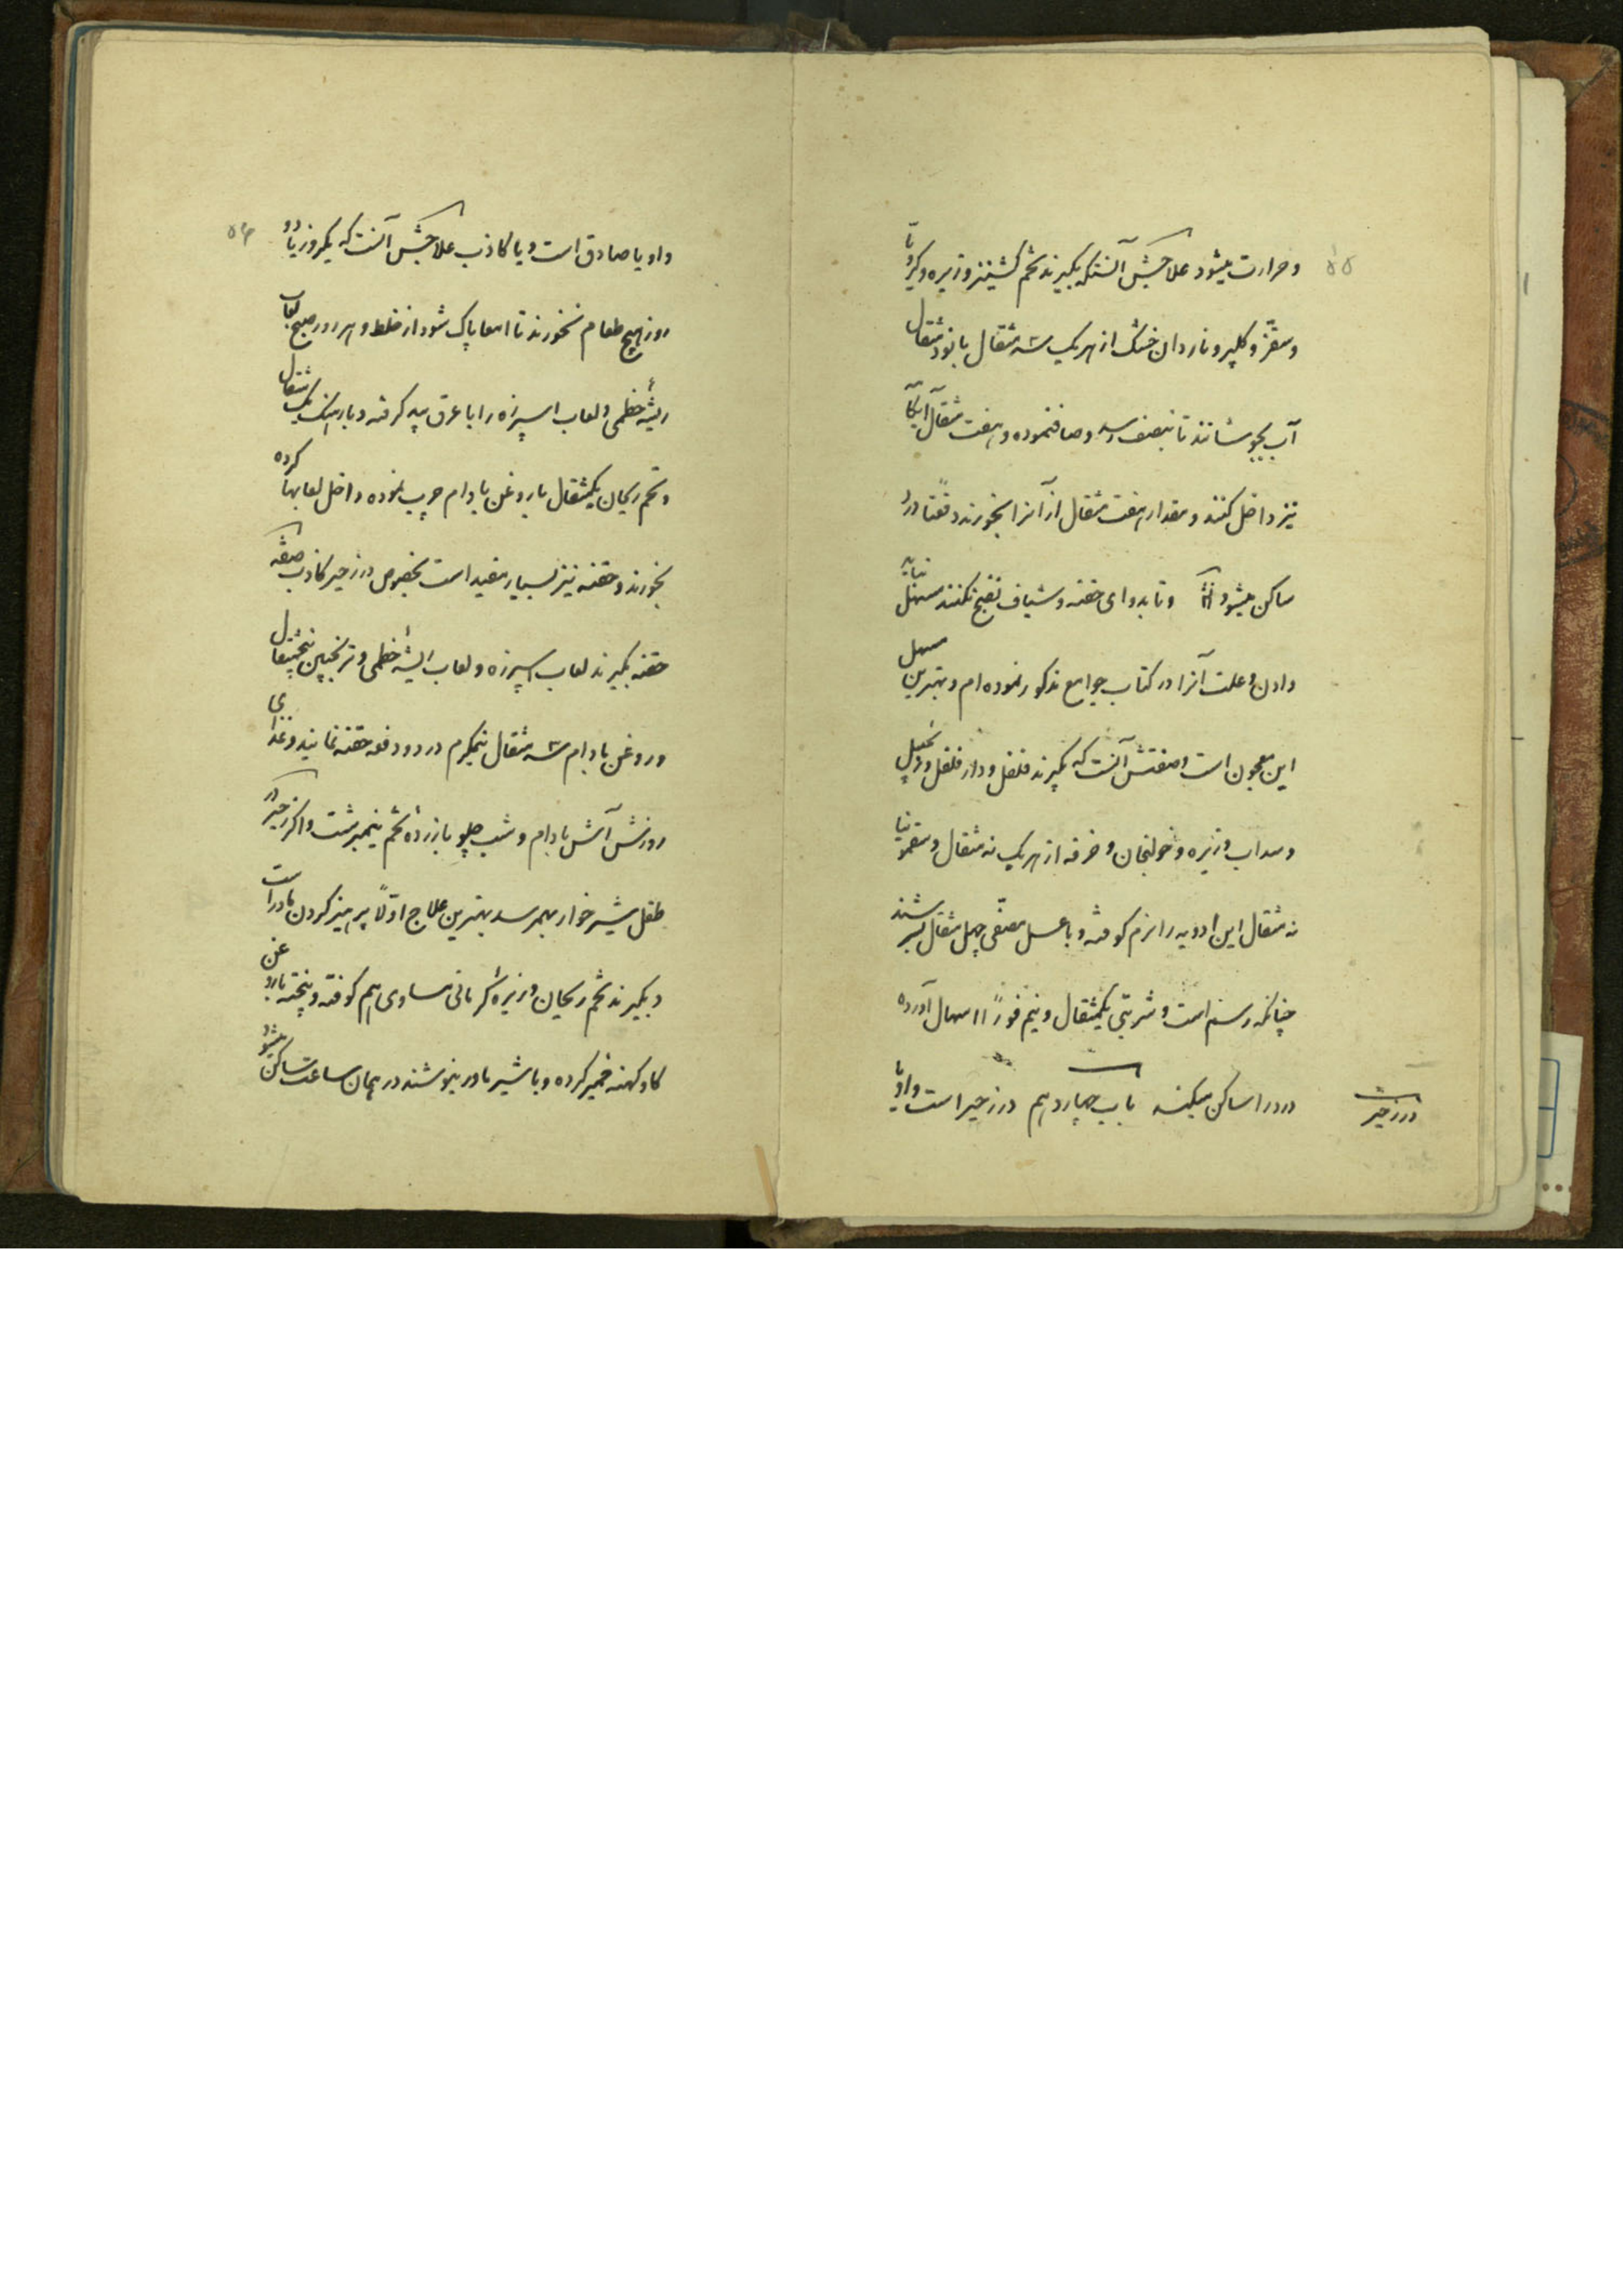 ۵۵
و حرارت میشود علاجش آنستکه بگیرند تخم کشنیز و زیره و کرویا
و سقز و کلپر و ناردان خشک از هریک سه مثقال با نود مثقال
آب بجوشانند تا بنصف رسد و صاف نموده و هفت مثقال
نیز داخل کنند و مقدار هفت مثقال از آنرا بخورند دفعتا درد
ساکن میشود و تا بدوای حقنه و شیاف نضج نکنند نباید مسهل
دادن و علت آنرا در کتاب جوامع مذکور نموده ام و بهترین مسهل
این معجون است و صفتش آنست که بگیرند فلفل و دار فلفل و زنجبیل
و سداب و زیره و خولنجان و خرفه از هریک نه مثقال و سقمونیا
نه مثقال این ادویه را نرم کوفته و با عسل مصفّی چهل مثقال بسرشند
چنانکه رسم است و شربتی یکمثقال و نیم فوراً اسهال آورده
درد را ساکن میکند باب چهاردهم در زحیر است و او یا
در زحیر
۵۶
و او یا صادق است و یا کاذب علاجش آنست که یکروز یا دو
روز هیچ طعام نخورند تا امعا پاک شود از خلط و هر روز صبح لعاب
ریشهٔ خطمی و لعاب اسپرزه را با عرق بید گرفته و بارهنگ یک مثقال
و تخم ریحان یکمثقال با روغن بادام چرب نموده داخل لعابها کرده
بخورند و حقنه نیز بسیار مفید است بخصوص در زحیر کاذب صفه
حقنه بگیرند لعاب اسپرزه و لعاب ریشهٔ خطمی و ترنجبین پنجمثقال
و روغن بادام سه مثقال نیمگرم در دو دفعه حقنه نمایند و غذای
روزش آش بادام و شب چلو با زردهٔ تخم نیمبرشت و اگر زحیر در
طفل شیرخوار بهمرسد بهترین علاج اوّلاً پرهیز کردن مادر است
و بگیرند تخم ریحان و زیرهٔ کرمانی مساوی هم کوفته و پخته با روغن
گاو کهنه خمیر کرده و با شیر مادر بنوشند در همان ساعت ساکن میشود